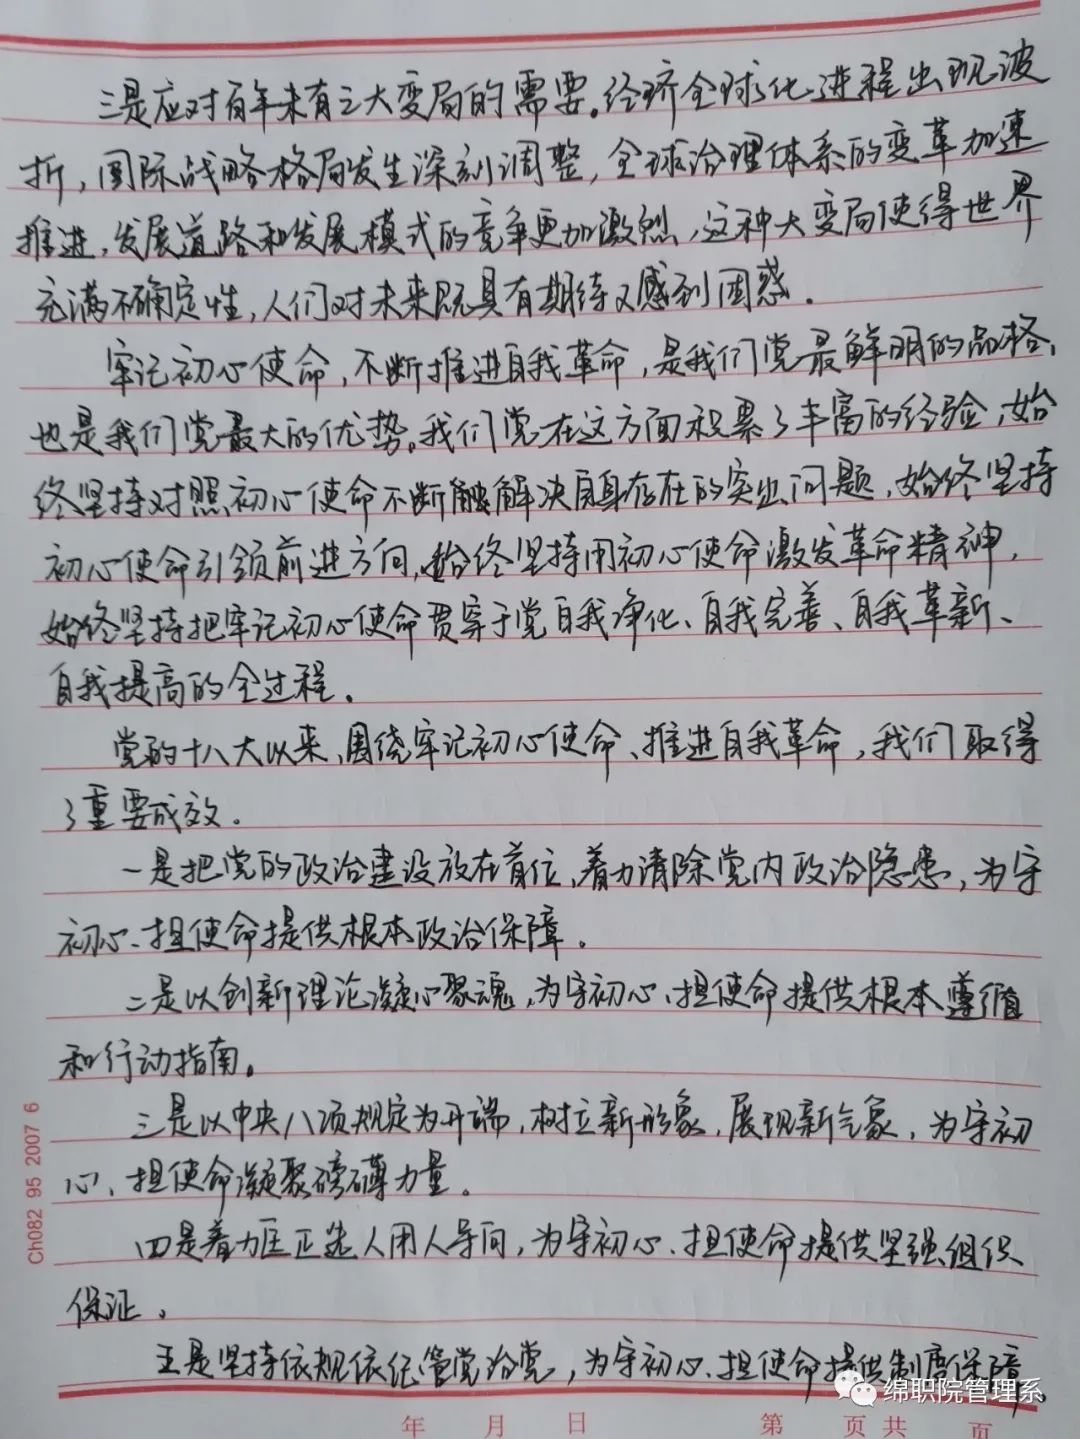 三是应对百年未有之大变局的需要。经济全球化进程出现波
折，国际战略格局发生深刻调整，全球治理体系的变革加速
推进，发展道路和发展模式的竞争更加激烈，这种大变局使得世界
充满不确定性，人们对未来既具有期待又感到困惑．
牢记初心使命，不断推进自我革命，是我们党最鲜明的品格，
也是我们党最大的优势。我们党在这方面积累了丰富的经验，始
终坚持对照初心使命不断解决自身存在的突出问题，始终坚持
初心使命引领前进方向，始终坚持用初心使命激发革命精神，
始终坚持把牢记初心使命贯穿于党自我净化、自我完善、自我革新、
自我提高的全过程．
党的十八大以来，围绕牢记初心使命、推进自我革命，我们取得
了重要成效．
一是把党的政治建设放在首位，着力清除党内政治隐患，为守
初心、担使命提供根本政治保障．
二是以创新理论凝心聚魂，为守初心、担使命提供根本遵循
和行动指南。
三是以中央八项规定为开端，树立新形象，展现新气象，为守初
心、担使命凝聚磅礴力量。
四是着力匡正选人用人导向，为守初心、担使命提供坚强组织
保证．
五是坚持依规依纪管党治党，为守初心、担使命提供制度保障。
Ch082 95 2007 6
绵职院管理系
年 月 日 第 页 共 页